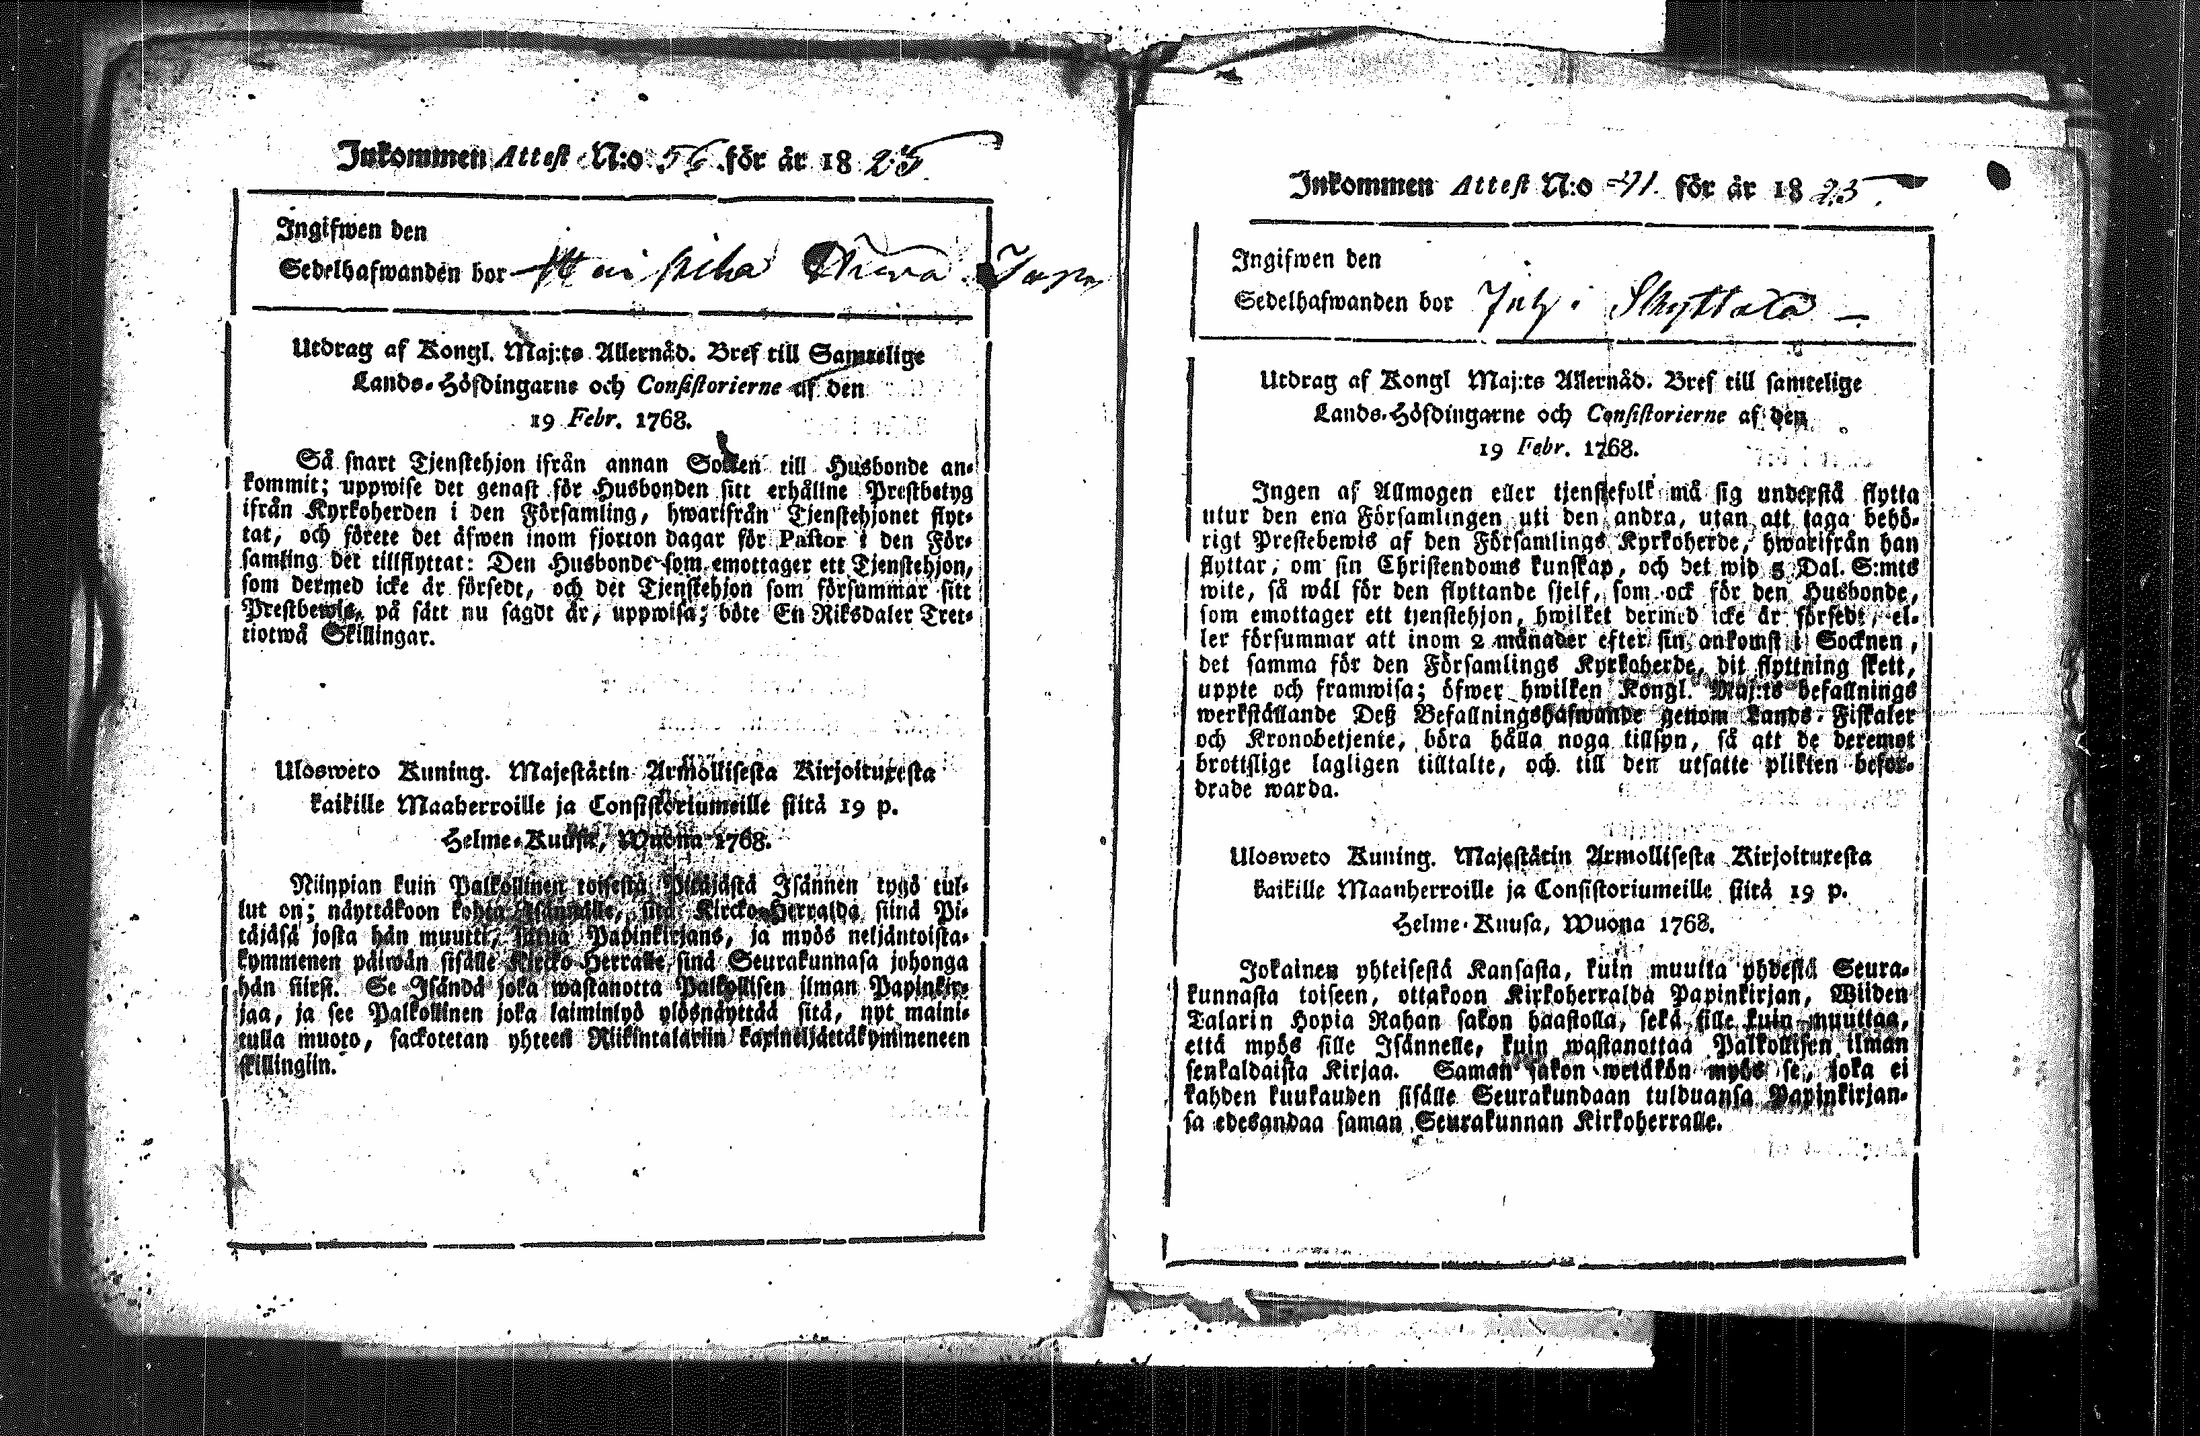 Inkommen Attest N:o 56 för år 1825
Ingifwen den
Sedelhafwanden bor
Utdrag af Kongl. Maj:ts Allernåd. Bref till Samtelige
Lands-Höfdingarne och Consistorierne af den
19 Febr. 1768.
Så snart Tjenstehjon ifrån annan Socken till Husbonde an-
kommit; uppwise det genast för Husbonden sitt erhållne Prestbetyg
ifrån Kyrkoherden i den Församling, hwarifrån Tjenstehjonet flyt-
tat, och förete det äfwen inom fjorton dagar för Pastor i den För-
samling det tillflyttat: Den Husbonde som emottager ett Tjenstehjon,
som dermed icke är försedt, och det Tjenstehjon som försummar sitt
Prestbewis, på sätt nu sagdt är, uppwisa; böte En Riksdaler Tret-
tiotwå Skillingar.
Ulosweto Kuning. Majestätin Armollisesta Kirjoituxesta
kaikille Maaherroille ja Consistoriumeille siitä 19 p.
Helme-Kuusa, Wuona 1768.
Niinpian kuin Palkollinen toisesta Pitäjästä Isännen tygö tul-
lut on; näyttäköön kohta Isännälle, sitä Kircko-Herralda siinä Pi-
täjäsä josta hän muutti, saatua Papinkirjans, ja myös neljäntoista-
kymmenen päiwän sisälle Kircko Herralle sinä Seurakunnasa johonga
hän siirsi. Se Isändä joka wastanotta Palkollisen ilman Papinkir-
jaa, ja see Palkollinen joka laiminlyö ylösnäyttää sitä, nyt maini-
tulla muoto, sackotetan yhteen Riikintalariin kaxineljättäkymmeneen
skillingiin.
Inkommen Attest N:o 41. för år 1825.
Ingifwen den
Sedelhafwanden bor July i Skyttälä —
Utdrag af Kongl Maj:ts Allernåd. Bref till samtelige
Lands-Höfdingarne och Consistorierne af den
19 Febr. 1768.
Ingen af Allmogen eller tjenstefolk må sig understå flytta
utur den ena Församlingen uti den andra, utan att taga behö-
rigt Prestebewis af den Församlings Kyrkoherde, hwarifrån han
flyttar, om sin Christendoms kunskap, och det wid 5 Dal. S:mts
wite, så wäl för den flyttande sjelf, som ock för den Husbonde,
som emottager ett tjenstehjon, hwilket dermed icke är försedt, el-
ler försummar att inom 2 månader efter sin ankomst i Socknen,
det samma för den Församlings Kyrkoherde, dit flyttning skett,
uppte och framwisa; öfwer hwilken Kongl. Maj:ts befallnings
werkställande Deß Befallningshafwande genom Lands-Fiskaler
och Kronobetjente, böra hålla noga tillsyn, så att de deremot
brottslige lagligen tilltalte, och till den utsatte plikten befor-
drade warda.
Ulosweto Kuning. Majestätin Armollisesta Kirjoituxesta
kaikille Maanherroille ja Consistoriumeille siitä 19 p.
Helme-Kuusa, Wuona 1768.
Jokainen yhteisestä Kansasta, kuin muutta yhdestä Seura-
kunnasta toiseen, ottakoon Kirkoherralda Papinkirjan, Wiiden
Talarin Hopia Rahan sakon haastolla, sekä sille kuin muuttaa,
että myös sille Isännelle, kuin wastanottaa Palkollisen ilman
senkaldaista Kirjaa. Saman sakon wetäkön myös se, joka ei
kahden kuukauden sisälle Seurakundaan tulduansa Papinkirjan-
sa edesandaa saman Seurakunnan Kirkoherralle.